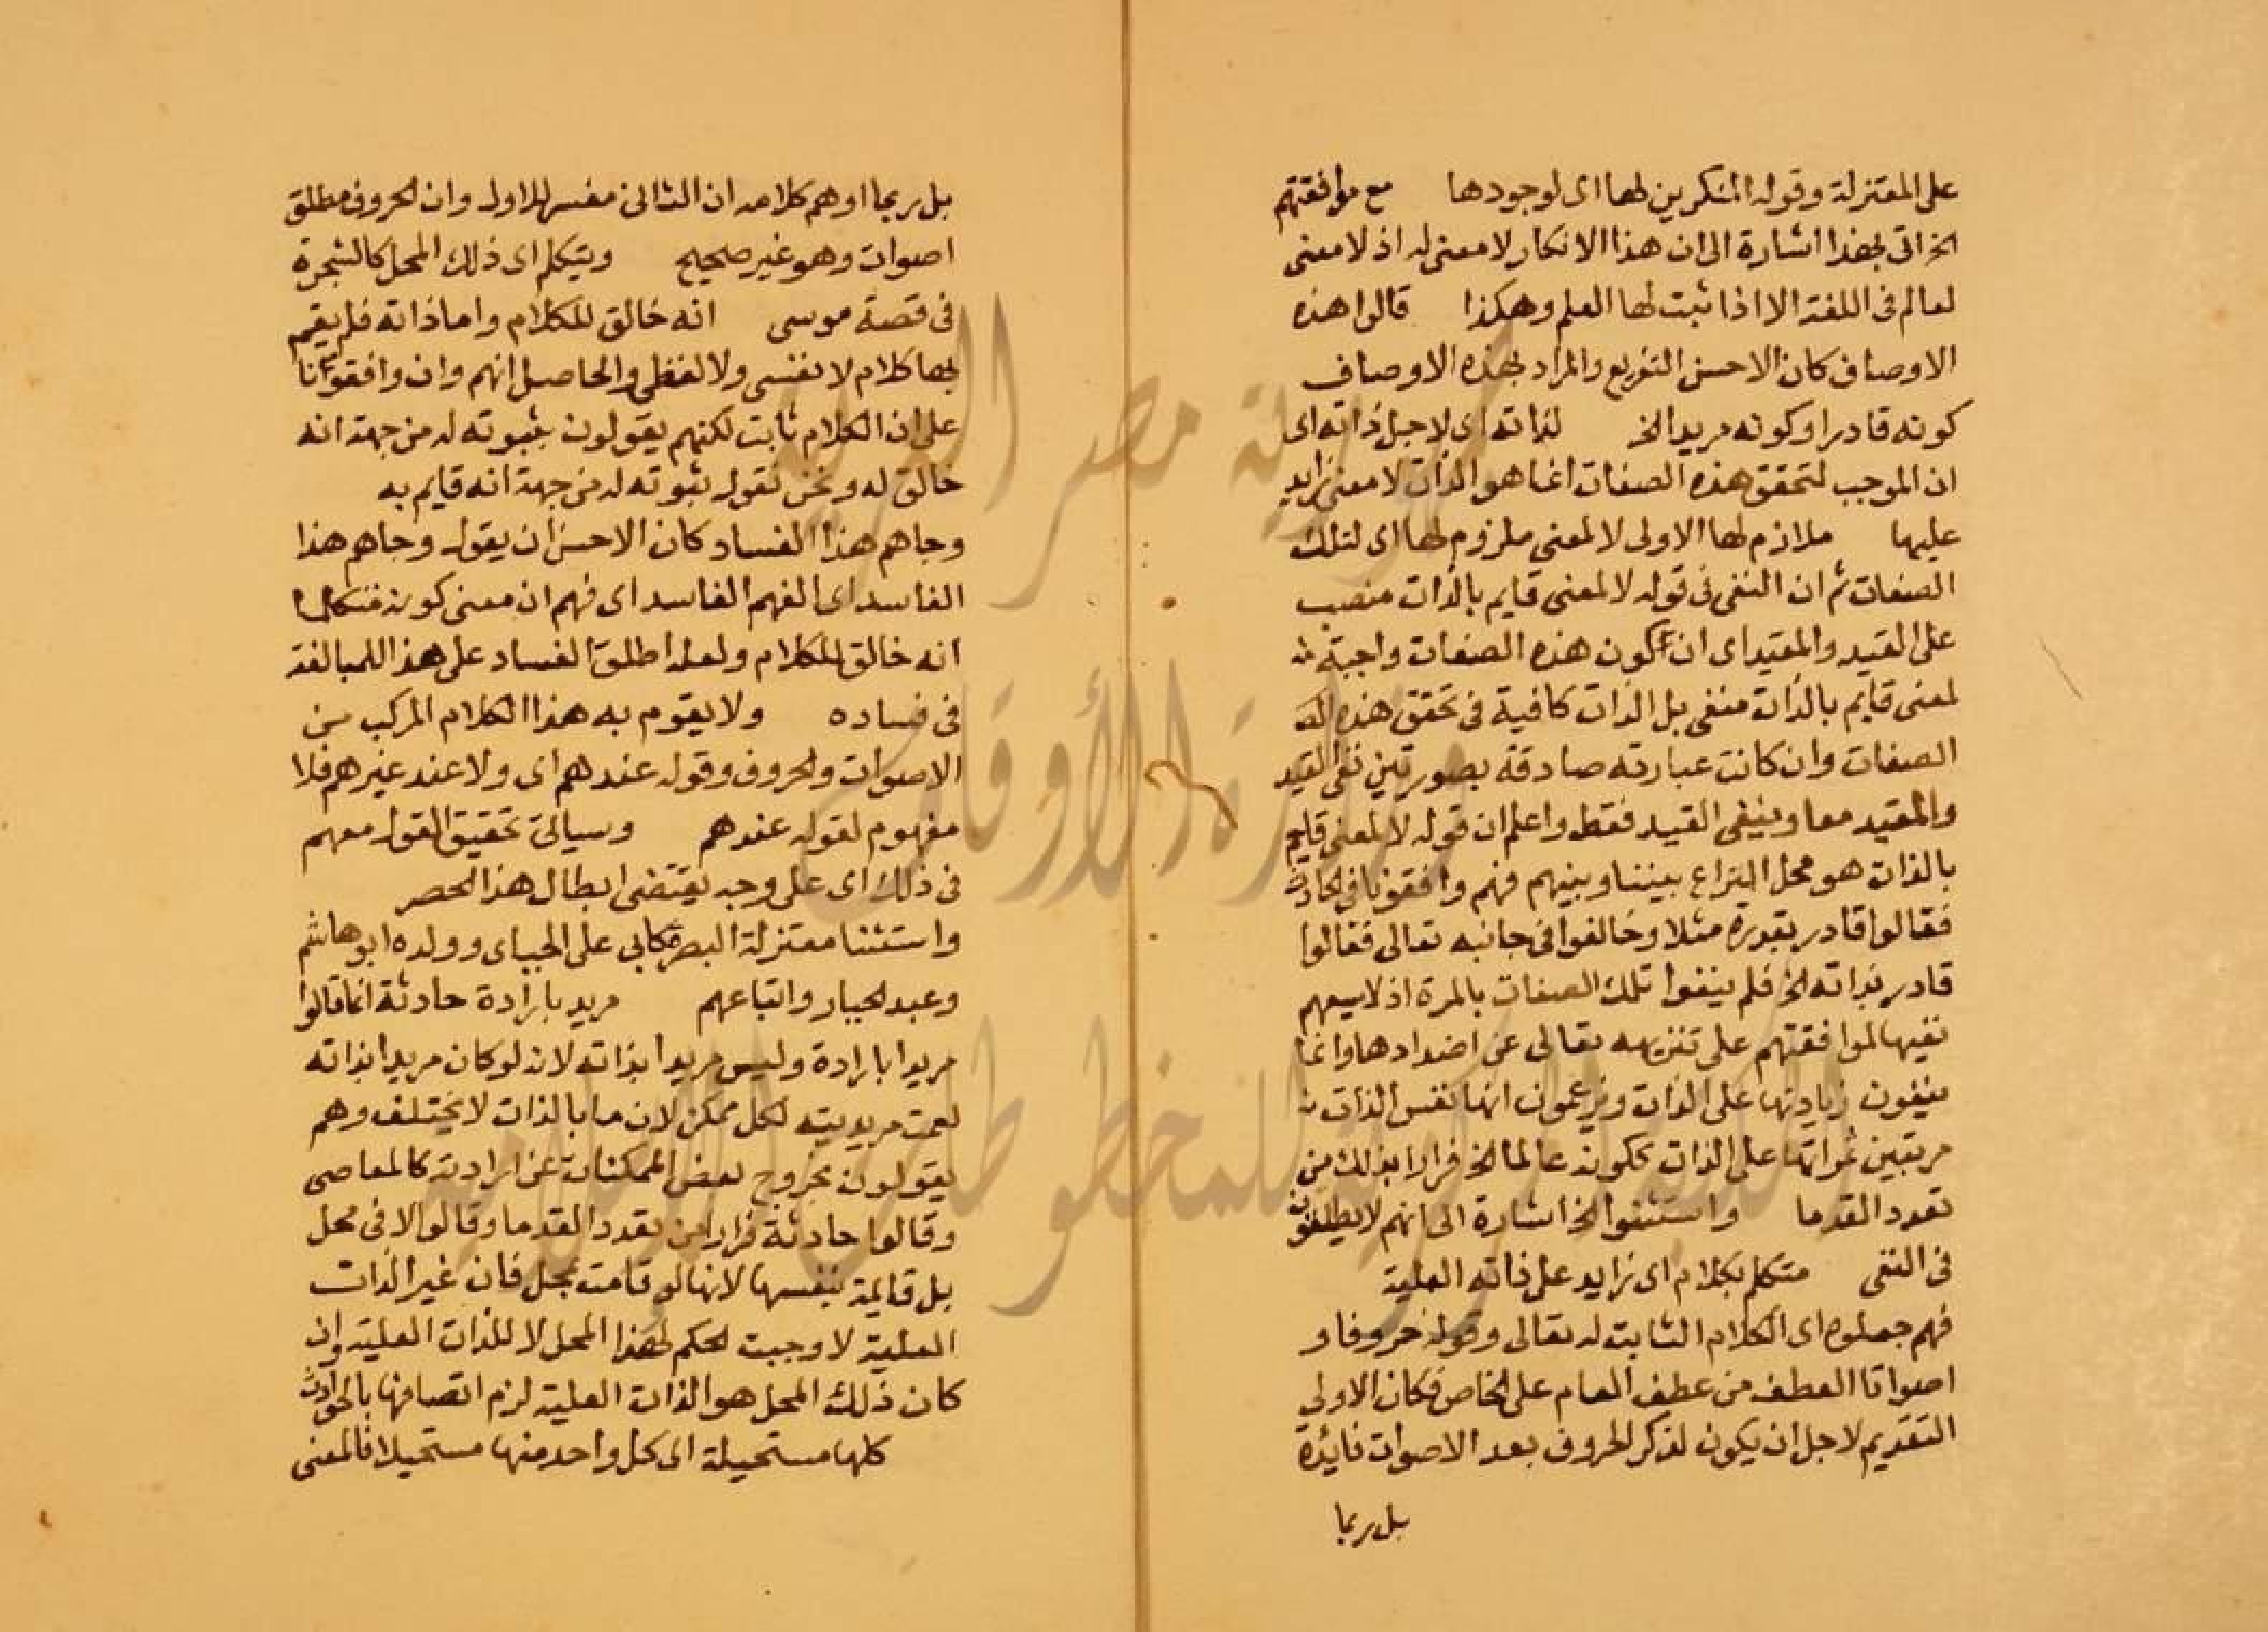 على المعتزلة وقوله المنكرين لها اى لوجودها مع موافقتهم
الخ اتى بهذا اشارة الى ان هذا الانكار لا معنى له اذ لا معنى
لعالم فى اللغة الا اذا ثبت لها العلم وهكذا قالوا هذه
الاوصاف كان الاحسن التفريع والمراد بهذه الاوصاف
كونه قادرا وكونه مريد الخ لذاته اى لاجل ذاته اى
ان الموجب لتحقق هذه الصفات انما هو الذات لا معنى زايد
عليها ملازم لها الاولى لا لمعنى ملزوم لها اى لتلك
الصفات ثم ان النفى فى قوله لا لمعنى قايم بالذات منصب
على القيد والمقيد اى ان كون هذه الصفات واجبة له
لمعنى قايم بالذات منفى بل الذات كافية فى تحقق هذه
الصفات وان كانت عبارته صادقة بصورتين نفى القيد
والمقيد معا وبنفى القيد فقط واعلم ان قوله لا لمعنى قايم
بالذات هو محل النزاع بيننا وبينهم فهم وافقونا فى الحادث
فقالوا قادر بقدرة مثلا وخالفوا فى جانبه تعالى فقالوا
قادر بذاته الخ فلم ينفوا تلك الصفات بالمرة اذ لا يسعهم
نفيها لموافقتهم على تنزيهه تعالى عن اضدادها وانما
ينفون زيادتها على الذات ويزعمون انها نفس الذات
مرتبين ثمراتها على الذات ككونه عالما الخ فرارا بذلك من
تعدد القدما واستثنوا الخ اشارة الى انهم لا يطلقون
فى النفى متكلم بكلام اى زايد على ذاته العلية
فهم جعلوه اى الكلام الثابت له تعالى وقوله حروفا و
اصواتا العطف من عطف العام على الخاص فكان الاولى
التقديم لاجل ان يكون لذكر الحروف بعد الاصوات فايدة
بل ربما
بل ربما اوهم كلامه ان الثانى مفسر للاول وان الحروف مطلق
اصوات وهو غير صحيح ويتكلم اى ذلك المحل كالشجرة
فى قصة موسى انه خالق للكلام واما ذاته فلم يقم
بها كلام لا نفسى ولا لفظى والحاصل انهم وان وافقونا
على ان الكلام ثابت لكنهم يقولون بثبوته له من جهة انه
خالق له ونحن نقول بثبوته له من جهة انه قايم به
وجاهم هذا الفساد كان الاحسن ان يقول وجاهم هذا
الفاسد اى الفهم الفاسد اى فهم ان معنى كونه متكلما
انه خالق للكلام ولعله اطلق الفساد على هذا للمبالغة
فى فساده ولا يقوم به هذا الكلام المركب من
الاصوات والحروف وقوله عندهم اى ولا عند غيرهم فلا
مفهوم لقوله عندهم وسياتى تحقيق القول معهم
فى ذلك اى على وجه يقتضى ابطال هذا الحصر
واستثنا معتزلة البصرة كابى على الجباى وولده ابو هاشم
وعبد الجبار واتباعهم مريد بارادة حادثة انما قالوا
مريدا بارادة وليس مريدا بذاته لانه لو كان مريدا بذاته
لعمت مريديته لكل ممكن لان ما بالذات لا يختلف وهم
يقولون بخروج بعض الممكنات عن ارادته كالمعاصى
وقالوا حادثة فرارا من تعدد القدما وقالوا لا فى محل
بل قايمة بنفسها لانها لو قامت بمحل فان غير الذات
العلية لاوجبت الحكم لهذا المحل لا للذات العلية وان
كان ذلك المحل هو الذات العلية لزم اتصافها بالحوادث
كلها مستحيلة اى كل واحد منها مستحيلا فالمعنى